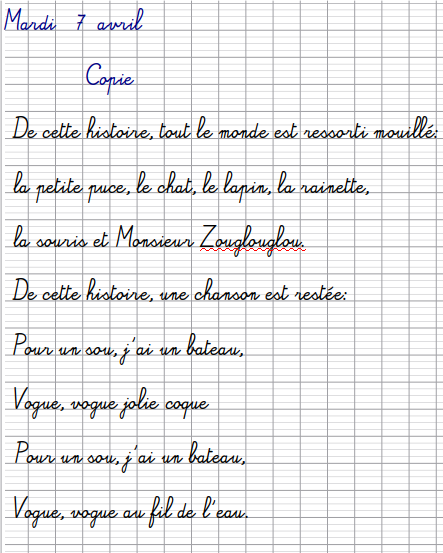 Mardi 7 avril
Copie
De cette histoire, tout le monde est ressorti mouillé:
la petite puce, le chat, le lapin, la rainette,
la souris et Monsieur Zouglouglou.
De cette histoire, une chanson est restée:
Pour un sou, j'ai un bateau,
Vogue, vogue jolie coque
Pour un sou, j'ai un bateau,
Vogue, vogue au fil de l'eau.